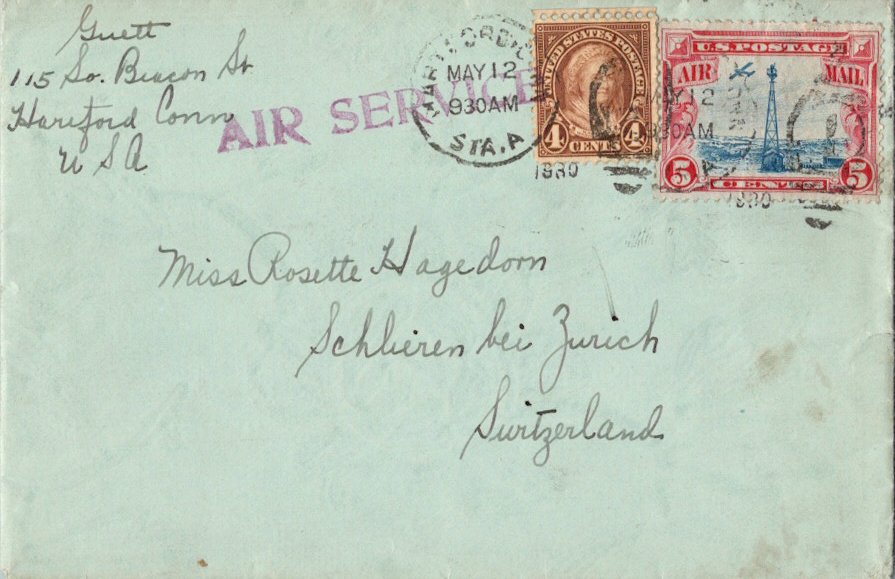 Guett
115 So. Beacon St
Hartford Conn
USA
AIR SERVICE
HARTFORD, CONN.
MAY 12
930AM
STA. A
1930
UNITED STATES POSTAGE
4 CENTS 4
U.S. POSTAGE
AIR MAIL
MAY 12
930AM
A
1930
5 CENTS 5
Miss Rosette Hagedorn
Schlieren bei Zurich
Switzerland